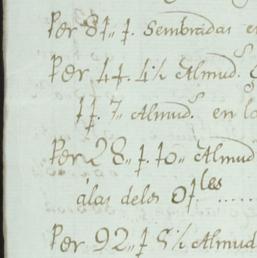 Per 81,, f. Sembradas en
Per 44. 4½ Almud.s
ff. 7,, Almud.s en lo
Per 28,, f. 10,, Almud
álas delos Of.les ......
Per 92,, f 8½ Almud